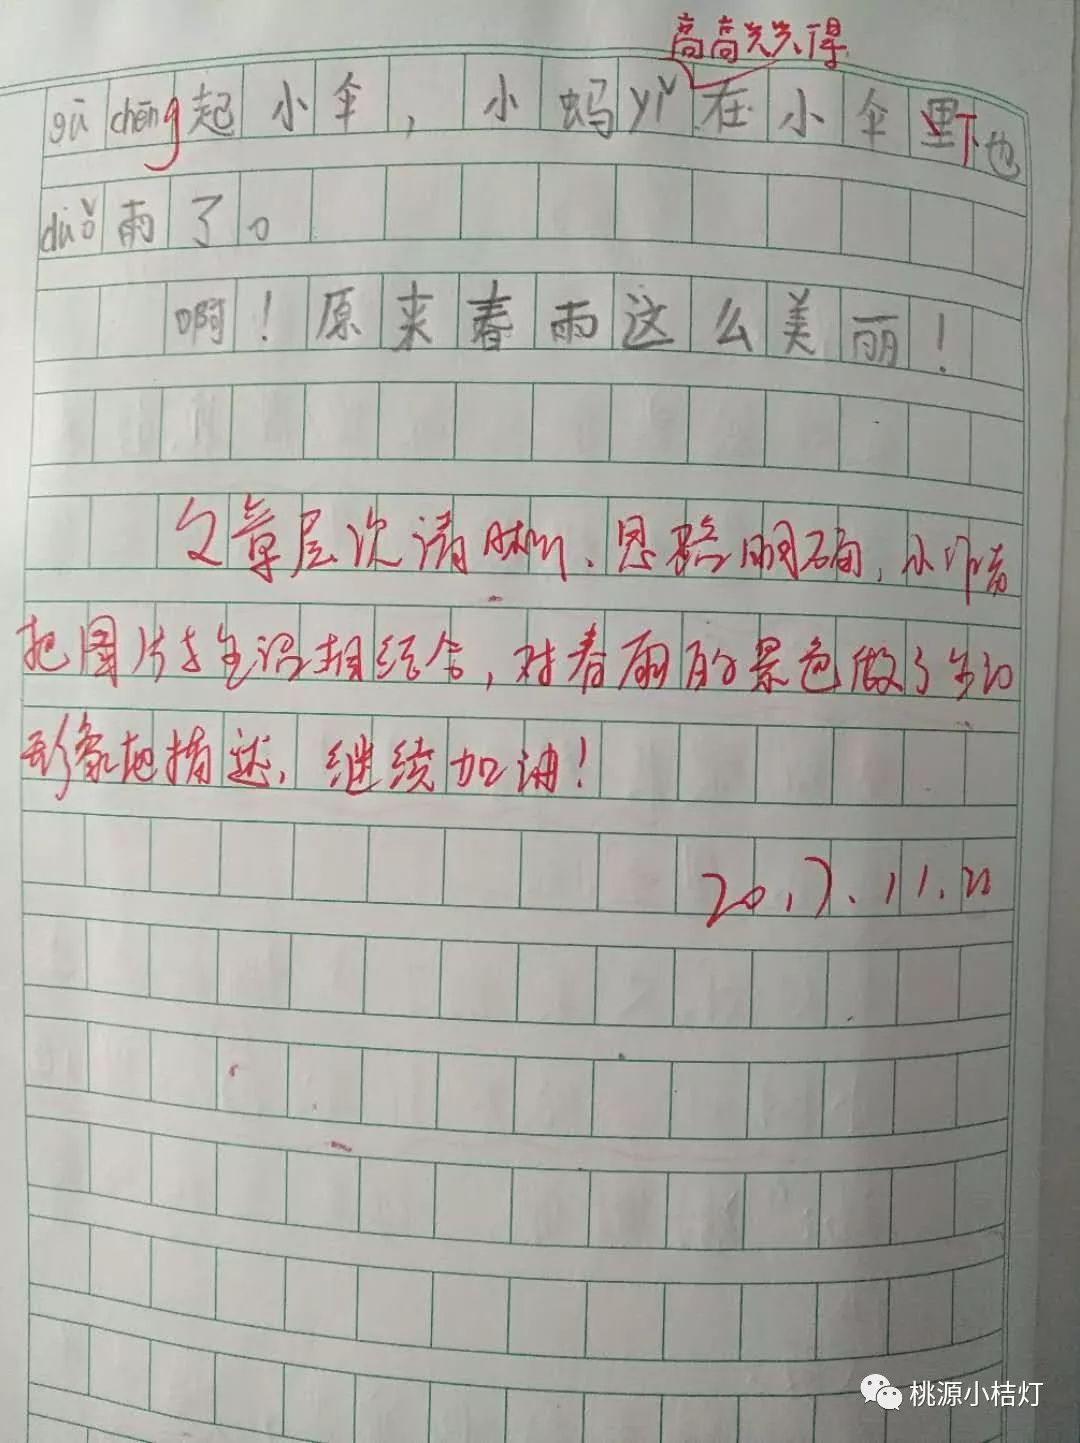 高高兴兴得
gū chēng起小伞，小蚂yǐ在小伞里下也
duǒ雨了。
啊！原来春雨这么美丽！
文章层次清晰、思路明确，小作者
把图片与生活相结合，对春雨的景色做了生动
形象地描述，继续加油！
桃源小桔灯